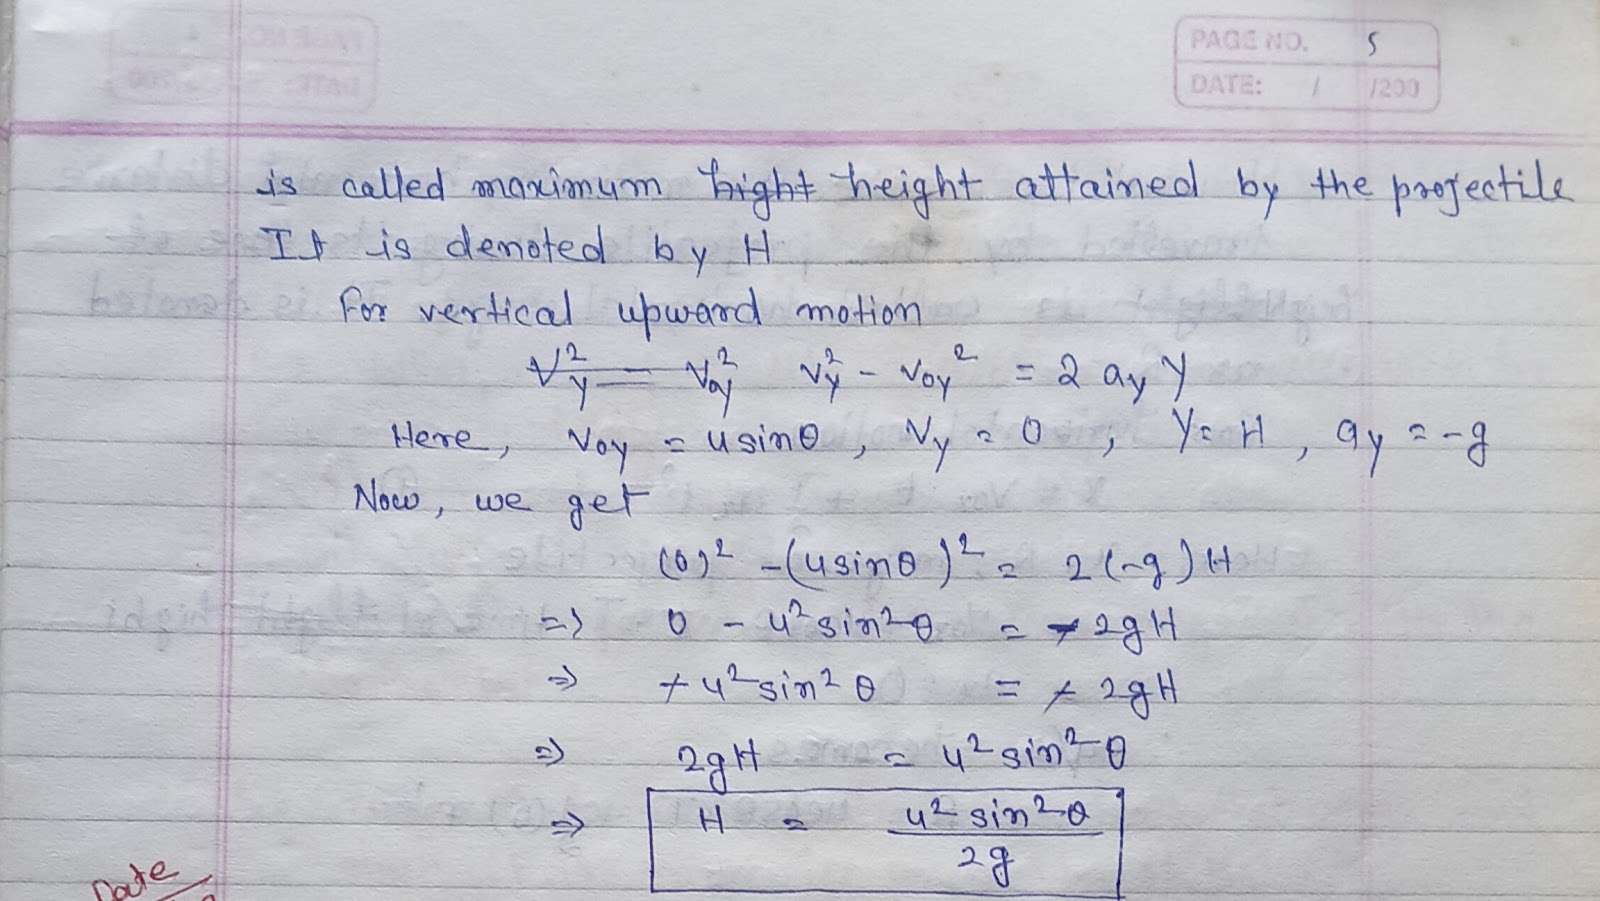 PAGE NO. 5
DATE: / /200
is called maximum hight height attained by the projectile
It is denoted by H
For vertical upward motion
V_y² = V_oy² V_y² - V_oy² = 2 a_y Y
Here, V_oy = u sinθ, V_y = 0, Y = H, a_y = -g
Now, we get
(0)² - (u sinθ)² = 2(-g)H
=> 0 - u² sin²θ = -2gH
=> + u² sin²θ = + 2gH
=> 2gH = u² sin²θ
=> H = u² sin²θ / 2g
Date